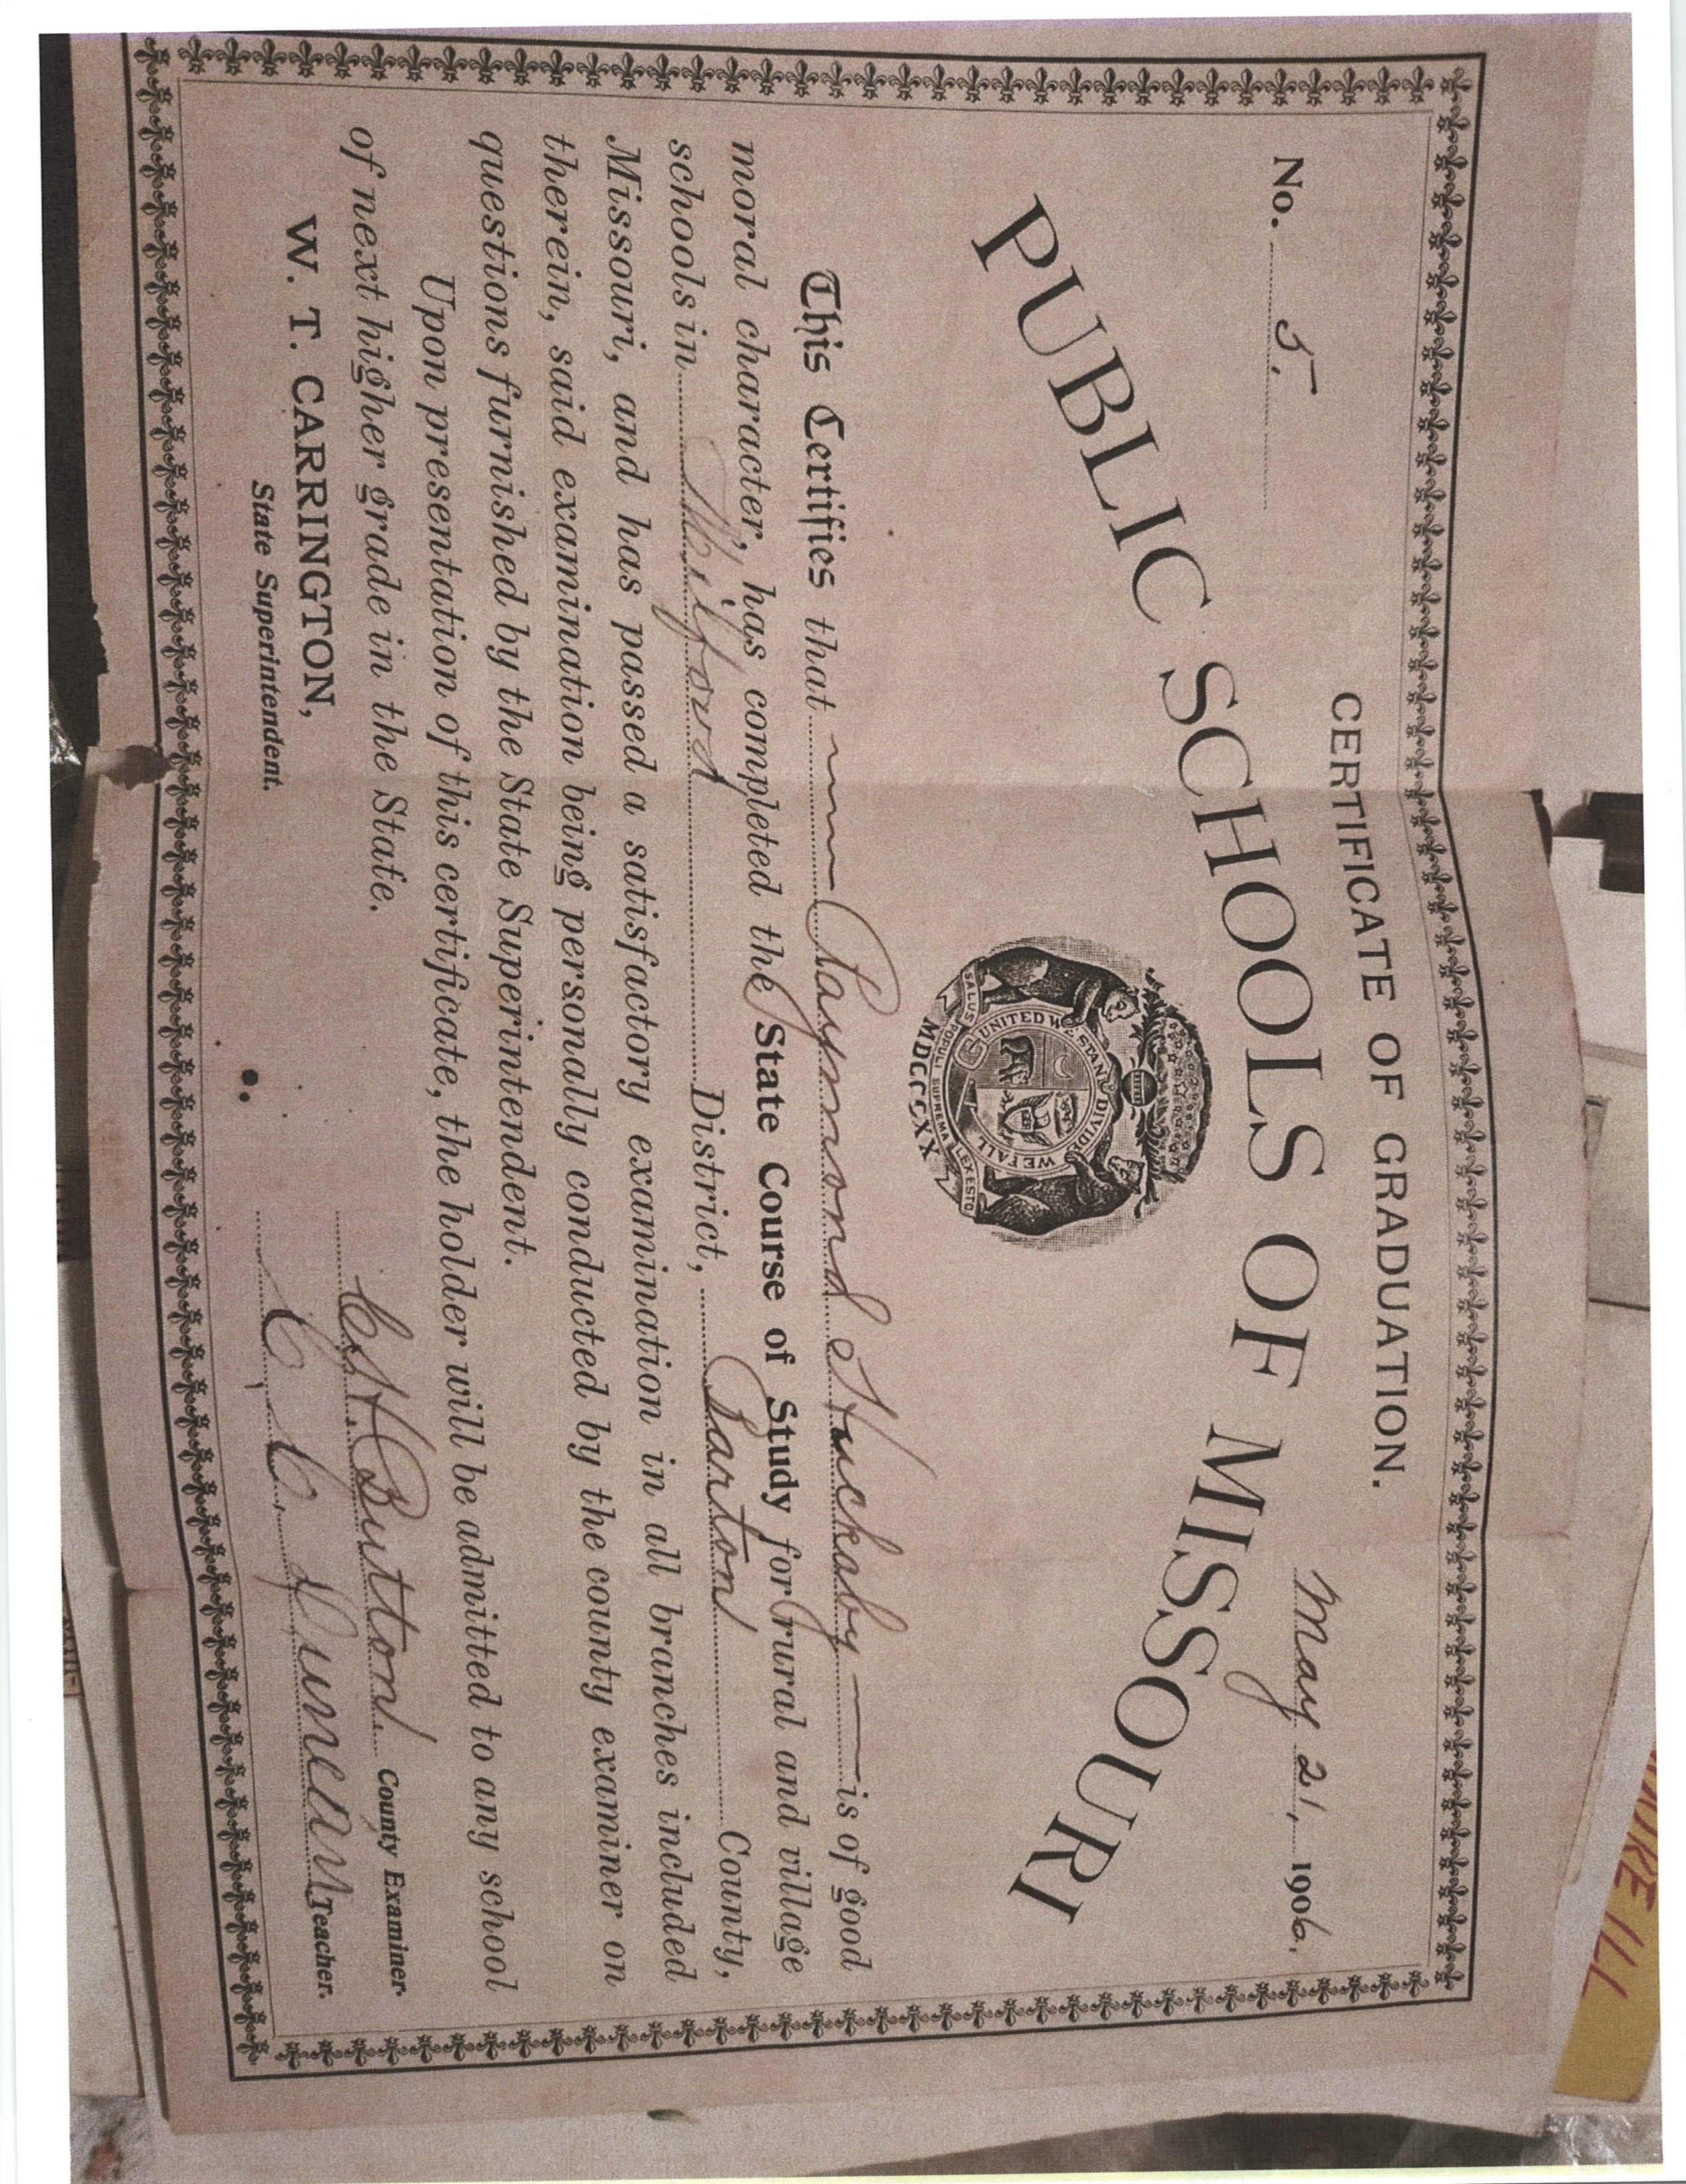 CERTIFICATE OF GRADUATION.
No. 5. May 21, 1906.
PUBLIC SCHOOLS OF MISSOURI
UNITED WE STAND DIVIDED WE FALL
SALUS POPULI SUPREMA LEX ESTO
MDCCCXX
This Certifies that Raymond Huckaby is of good
moral character, has completed the State Course of Study for rural and village
schools in Milford District, Barton County,
Missouri, and has passed a satisfactory examination in all branches included
therein, said examination being personally conducted by the county examiner on
questions furnished by the State Superintendent.
Upon presentation of this certificate, the holder will be admitted to any school
of next higher grade in the State.
W. T. CARRINGTON,
State Superintendent.
Button. County Examiner.
C. C. Duncan Teacher.